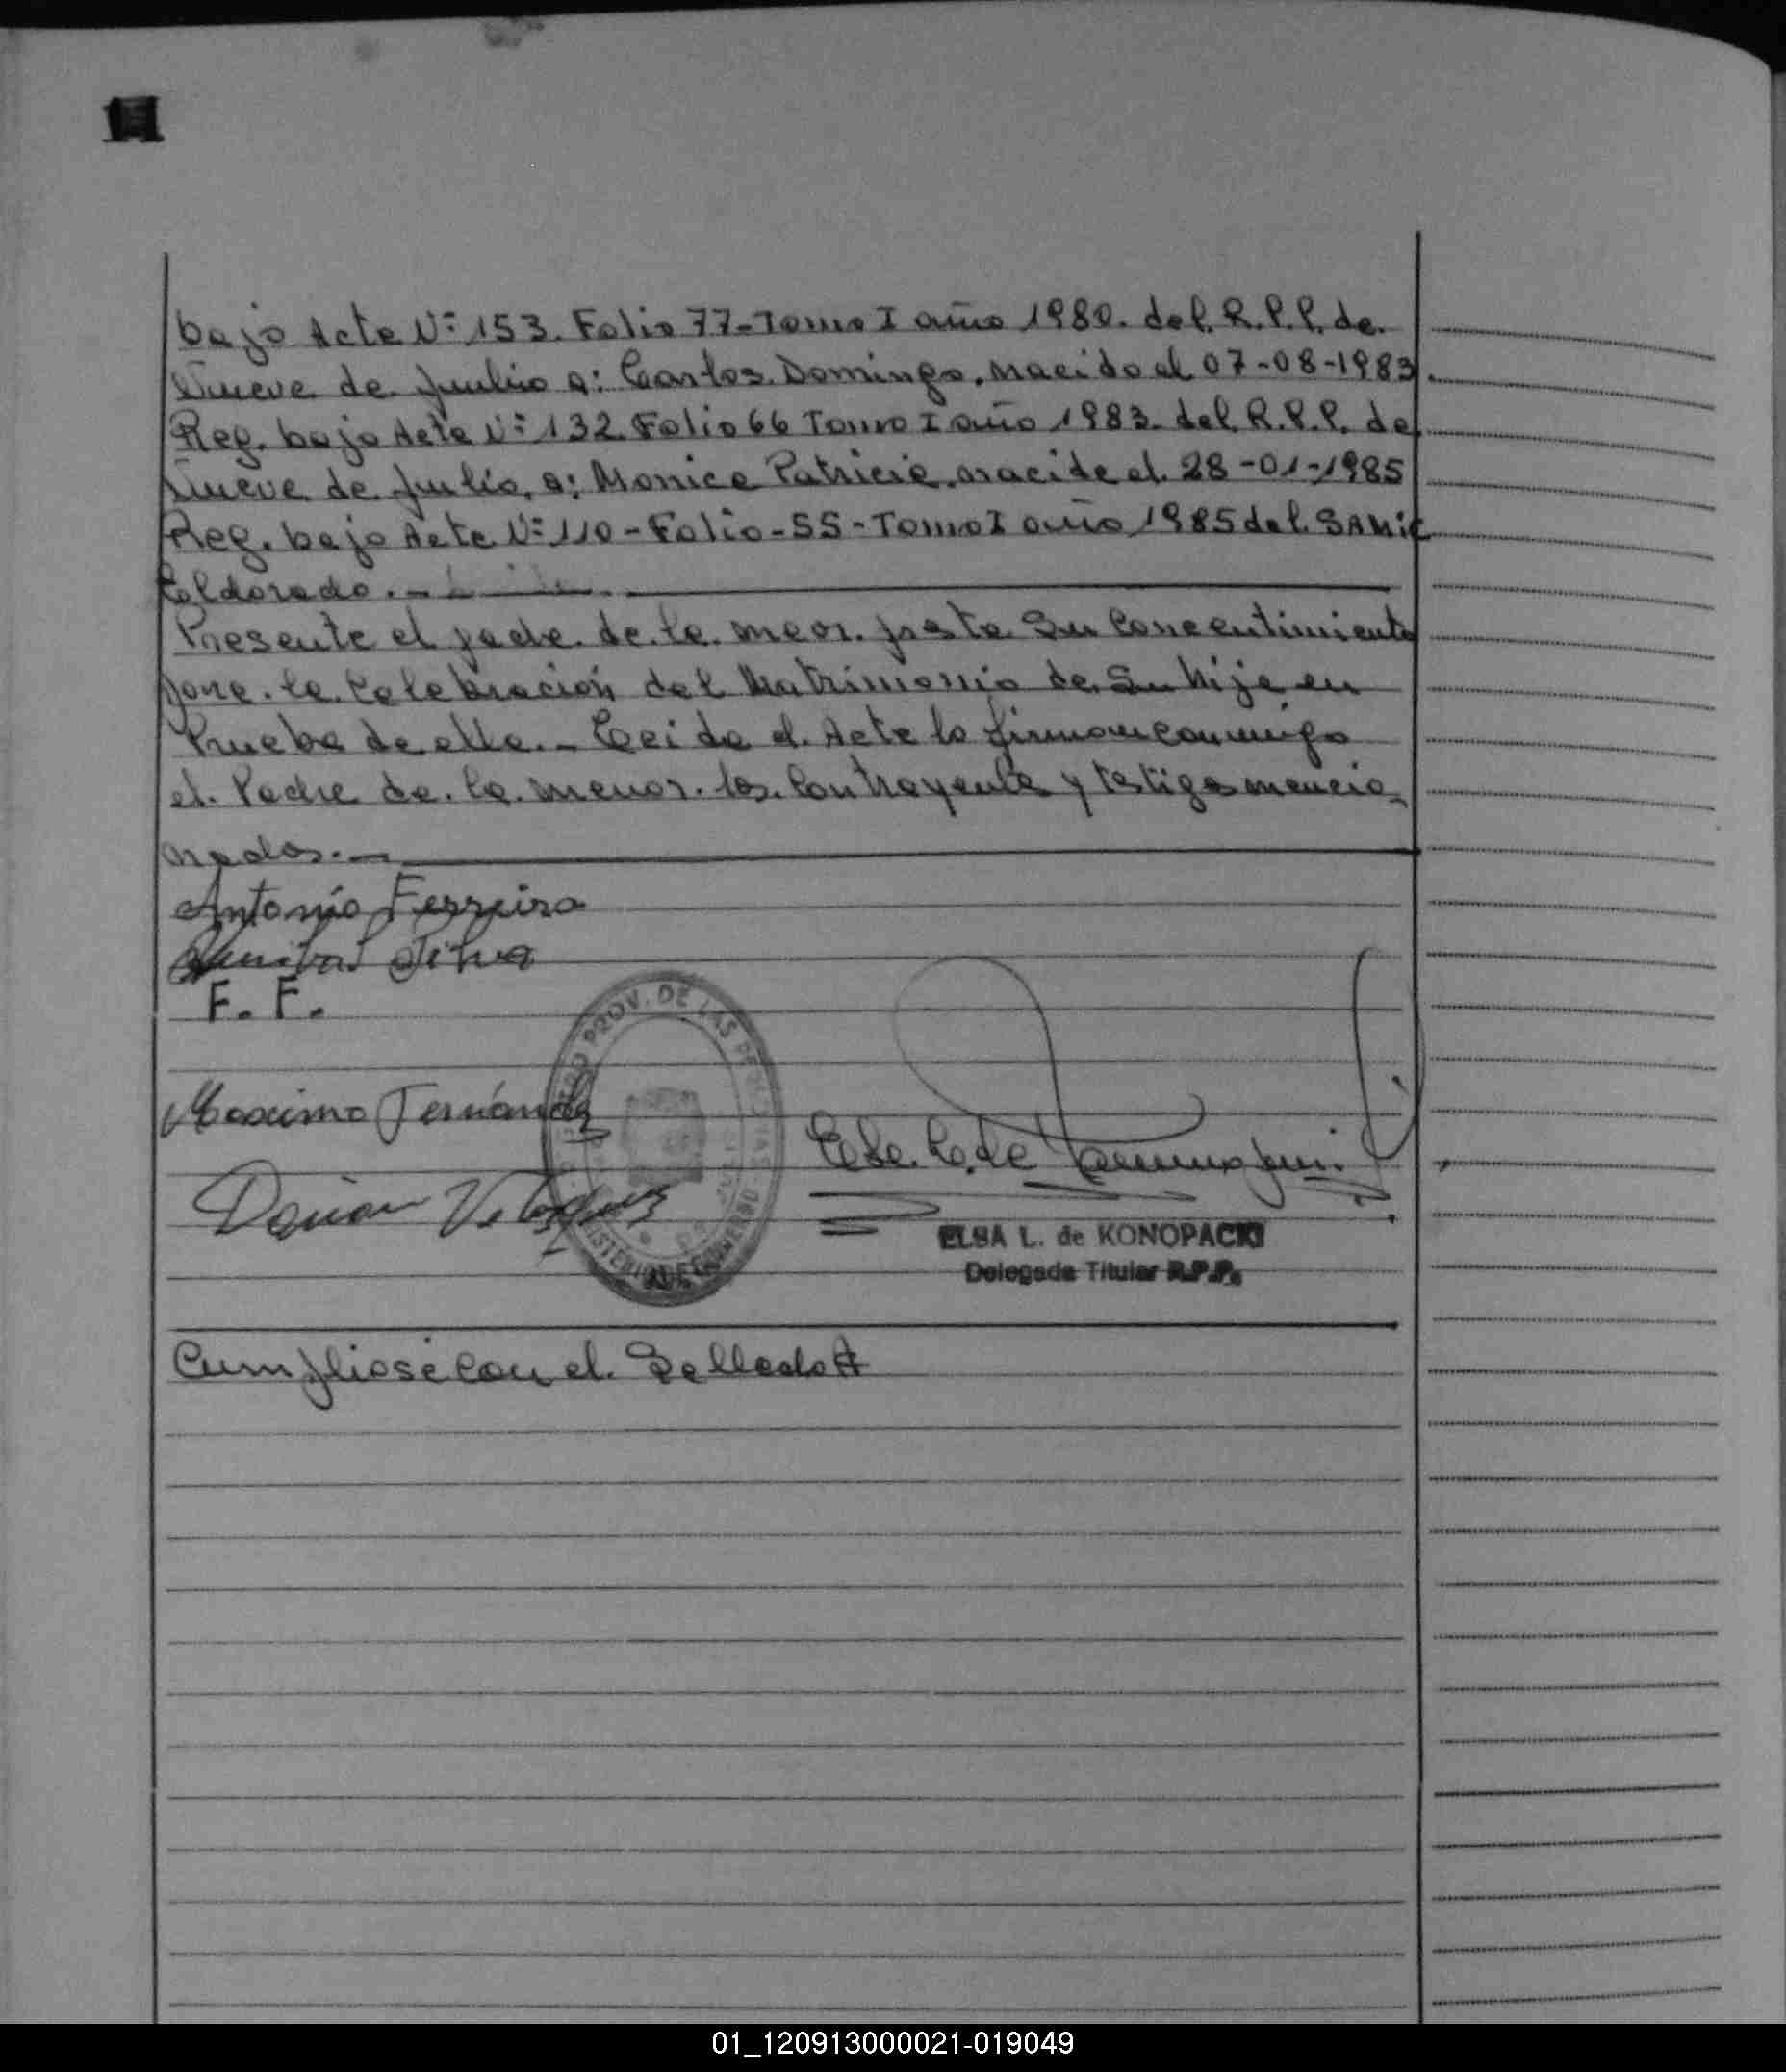 bajo Acta Nº 153. Folio 77-Tomo I año 1980. del. R.P.P. de.
Nueve de Julio a: Carlos. Domingo. nacido el 07-08-1983.
Reg. bajo Acta Nº 132 Folio 66 Tomo I año 1983. del. R.P.P. de
Nueve de Julio, a: Monica Patricia. nacida el. 28-01-1985
Reg. bajo Acta Nº 110-Folio-55-Tomo I año 1985 del. SAMIC
Eldorado.-
Presente el padre. de. la. meor. presta Su Concentimiento
para. la. Celebración del Matrimonio de. Su hija en
Prueba de ello.- Leida el. Acta la firman conmigo
el. Padre de. la. menor. los. Contrayente y testigos mencio-
nados.-
Antonio Ferreira
Silva
F. F.
Maximo Fernández
Velasquez
PROV. DE LAS
ELSA L. de KONOPACKI
Delegada Titular R.P.P.
Cumpliose con el. Sellado
01_120913000021-019049